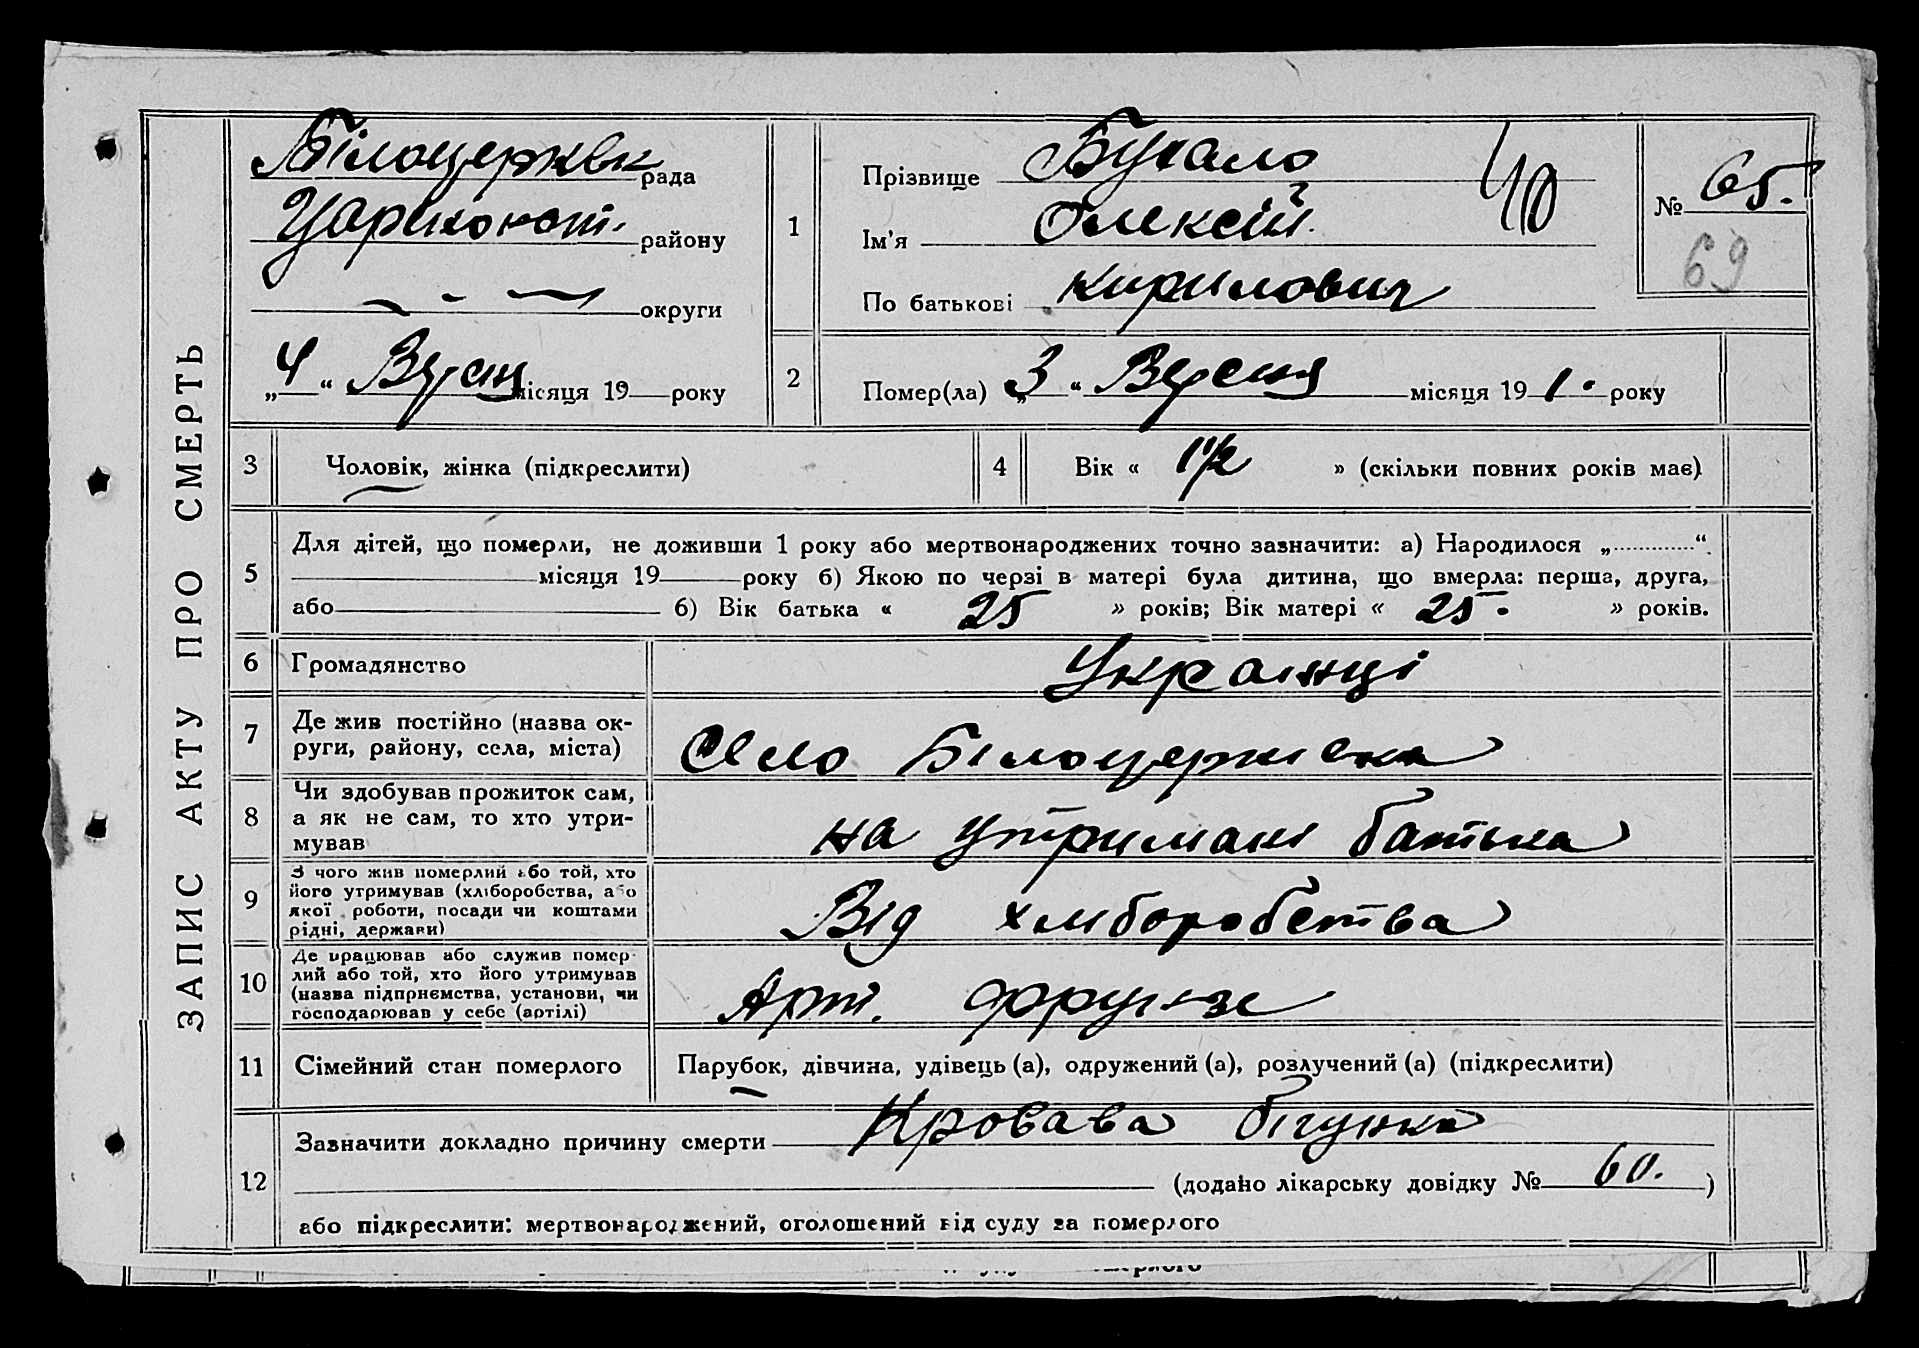 ЗАПИС АКТУ ПРО СМЕРТЬ
Білоцерквк рада
району
округи
„4“ Вересн місяця 19 року
1
Прізвище
Ім'я Олексій
По батькові Кирилович
40
№ 65.
69
2
Помер(ла) „3“ Вересня місяця 19 1. року
3
Чоловік, жінка (підкреслити)
4
Вік « 1 1/2 » (скільки повних років має)
5
Для дітей, що померли, не доживши 1 року або мертвонароджених точно зазначити: а) Народилося „ “
місяця 19 року б) Якою по черзі в матері була дитина, що вмерла: перша, друга,
або б) Вік батька « 25 » років; Вік матері « 25. » років.
6
Громадянство
Українці
7
Де жив постійно (назва ок-
руги, району, села, міста)
Село
8
Чи здобував прожиток сам,
а як не сам, то хто утри-
мував
на утримані батька
9
З чого жив померлий або той, хто
його утримував (хліборобства, або
якої роботи, посади чи коштами
рідні, держави)
Від хліборобства
10
Де працював або служив помер-
лий або той, хто його утримував
(назва підприємства, установи, чи
господарював у себе (артілі)
Арт. Фрунзе
11
Сімейний стан померлого
Парубок, дівчина, удівець (а), одружений (а), розлучений (а) (підкреслити)
12
Зазначити докладно причину смерти Кровава бігунка
(додано лікарську довідку № 60. )
або підкреслити: мертвонароджений, оголошений від суду за померлого